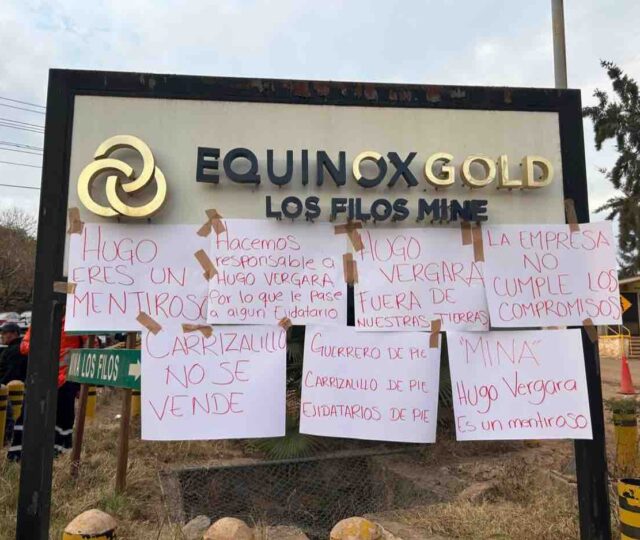 EQUINOX GOLD
LOS FILOS MINE
HUGO
ERES UN
MENTIROSO
Hacemos
responsable a
HUGO VERGARA
Por lo que le pase
a algun Ejidatario
HUGO
VERGARA
FUERA DE
NUESTRAS TIERRAS
LA EMPRESA
NO
CUMPLE LOS
COMPROMISOS
CARRIZALILLO
NO SE
VENDE
GUERRERO DE PIE
CARRIZALILLO DE PIE
EJIDATARIOS DE PIE
"MINA"
Hugo Vergara
Es un mentiroso
LOS FILOS